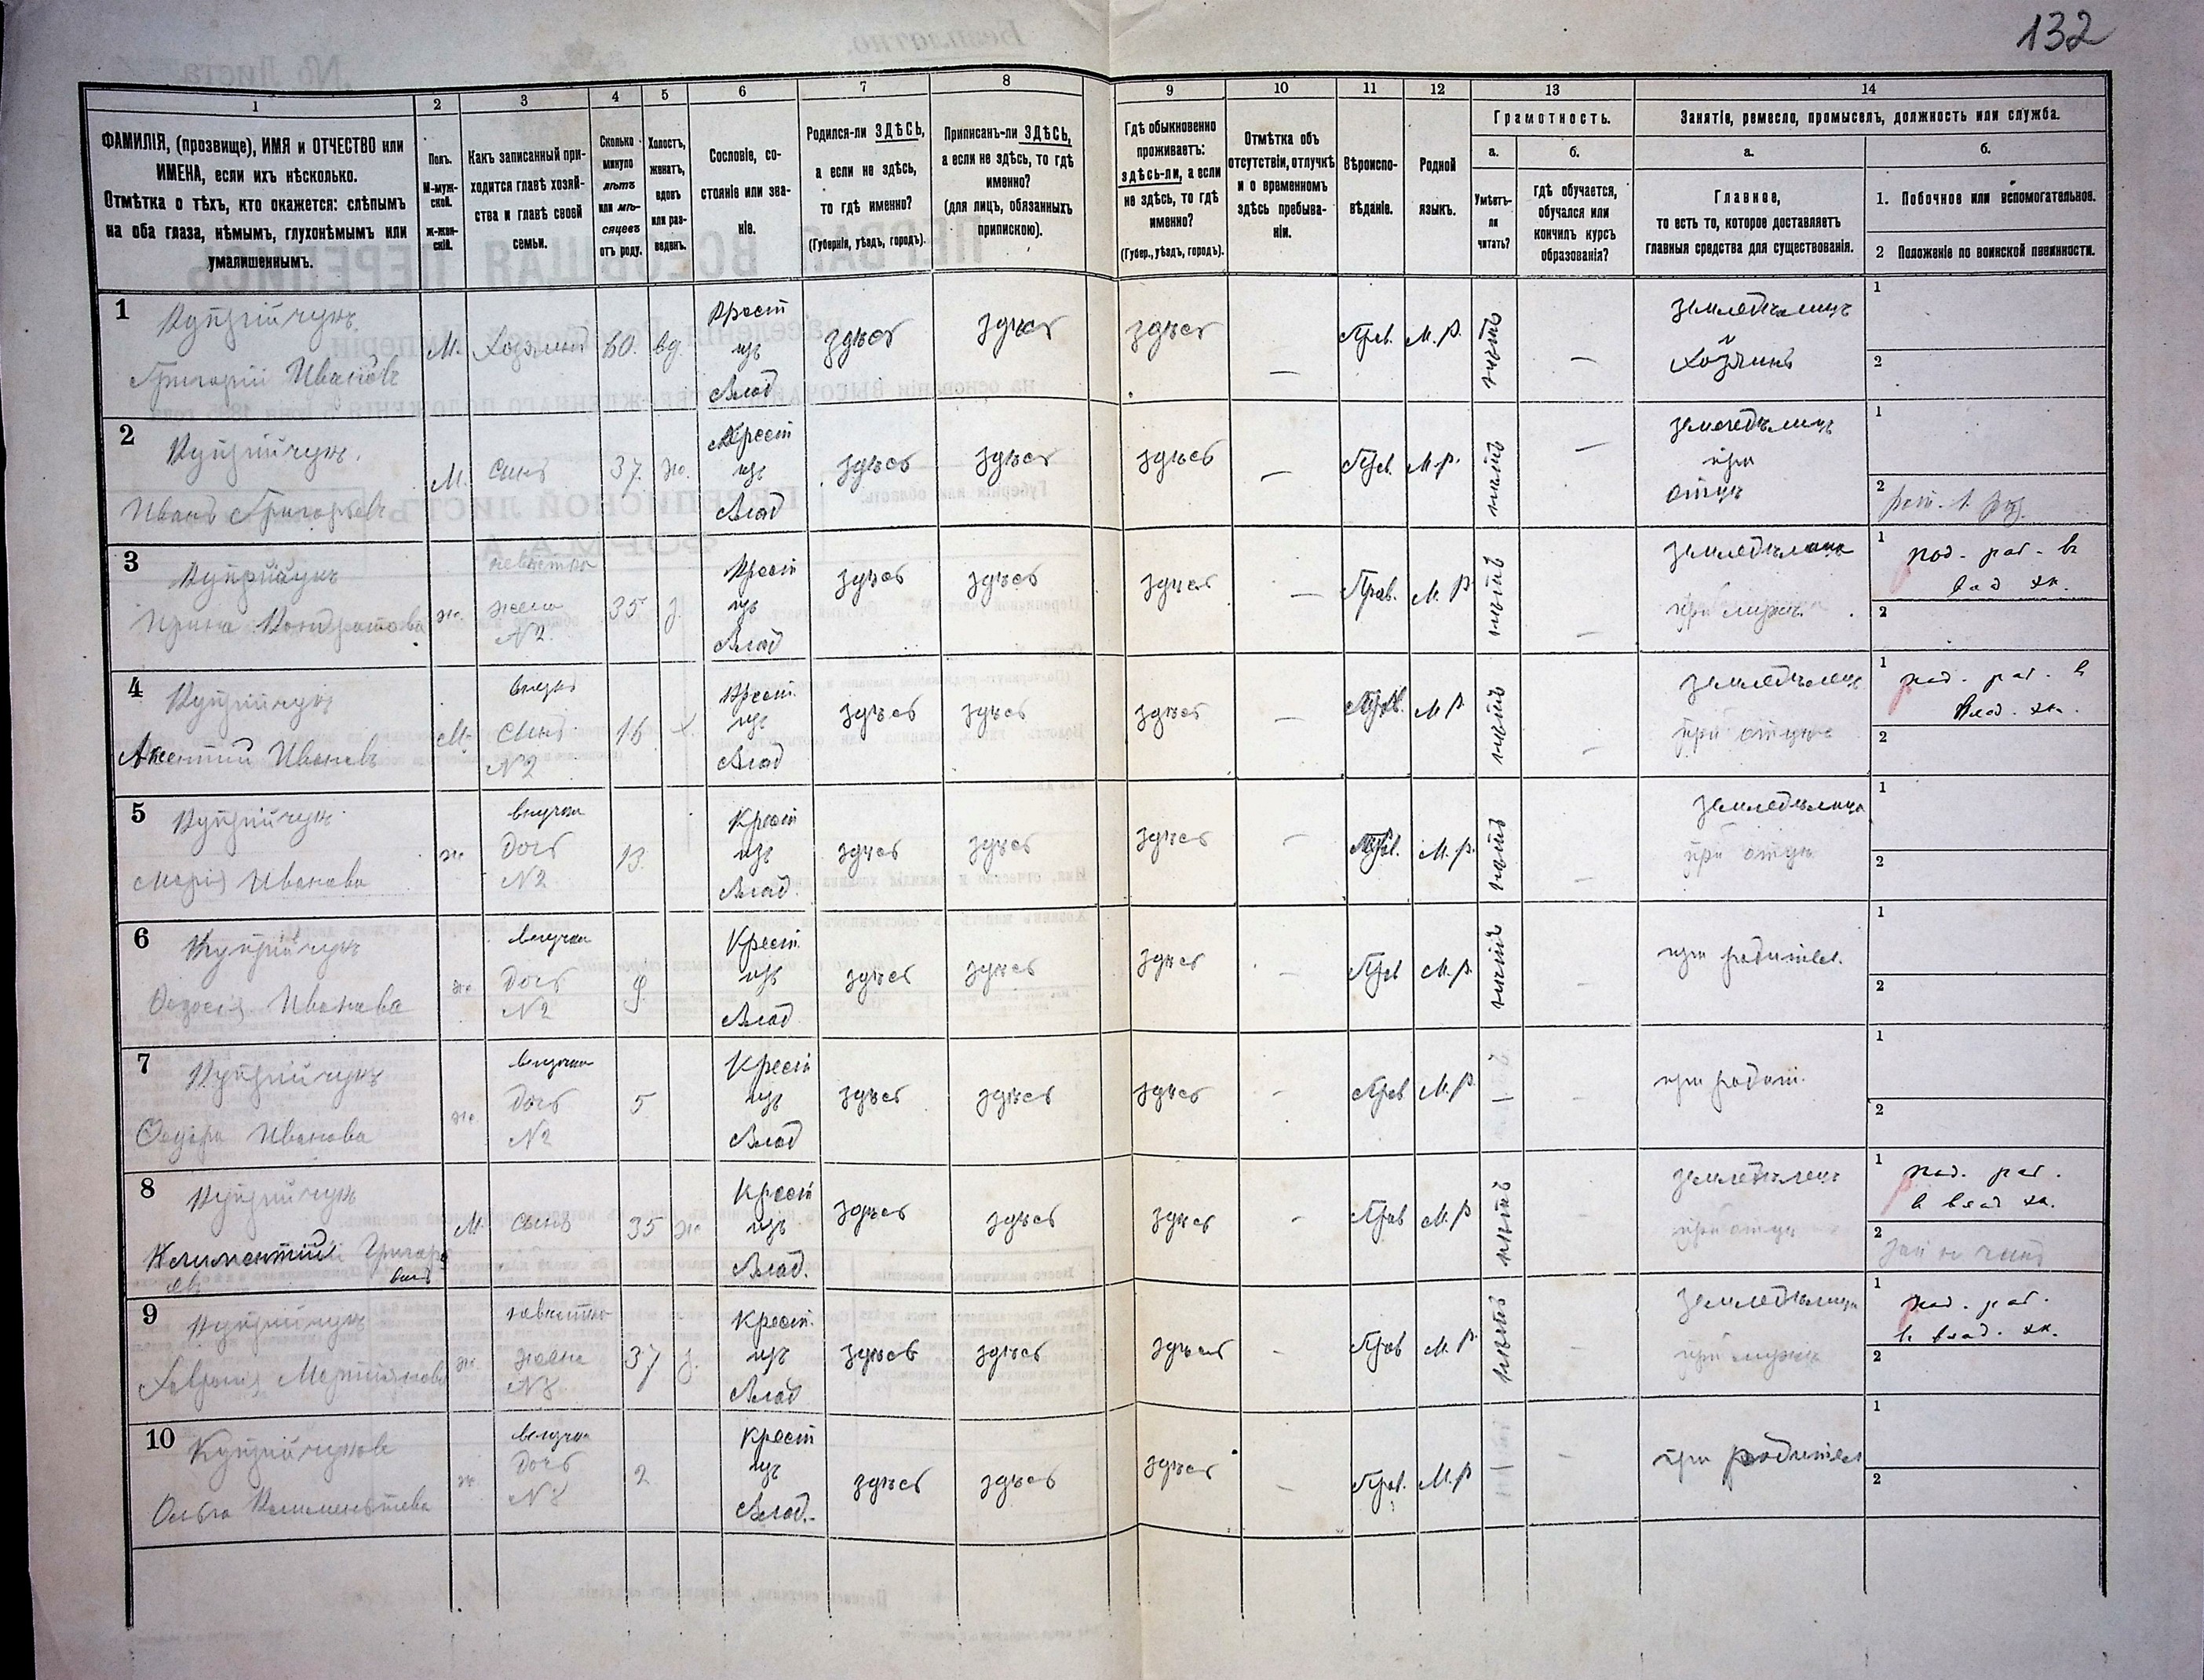 132
1
2
3
4
5
6
7
8
9
10
11
12
13
14
ФАМИЛІЯ, (прозвище), ИМЯ и ОТЧЕСТВО или
ИМЕНА, если ихъ нѣсколько.
Отмѣтка о тѣхъ, кто окажется: слѣпымъ
на оба глаза, нѣмымъ, глухонѣмымъ или
умалишеннымъ.
Полъ.
М-муж-
ской.
ж-жен-
скій.
Какъ записанный при-
ходится главѣ хозяй-
ства и главѣ своей
семьи.
Сколько
минуло
лѣтъ
или мѣ-
сяцевъ
отъ роду.
Холостъ,
женатъ,
вдовъ
или раз-
веденъ.
Сословіе, со-
стояніе или зва-
ніе.
Родился-ли ЗДѢСЬ,
а если не здѣсь,
то гдѣ именно?
(Губернія, уѣздъ, городъ).
Приписанъ-ли ЗДѢСЬ,
а если не здѣсь, то гдѣ
именно?
(для лицъ, обязанныхъ
припискою).
Гдѣ обыкновенно
проживаетъ:
здѣсь-ли, а если
не здѣсь, то гдѣ
именно?
(Губер., уѣздъ, городъ).
Отмѣтка объ
отсутствіи, отлучкѣ
и о временномъ
здѣсь пребыва-
ніи.
Вѣроиспо-
вѣданіе.
Родной
языкъ.
Грамотность.
а.
Умѣетъ-
ли
читать?
б.
Гдѣ обучается,
обучался или
кончилъ курсъ
образованія?
Занятіе, ремесло, промыселъ, должность или служба.
а.
Главное,
то есть то, которое доставляетъ
главныя средства для существованія.
б.
1. Побочное или вспомогательное.
2 Положеніе по воинской повинности.
1
Куприйчукъ
Григорій Ивановъ
М. Хозяинъ 60. вд.
Крест
изъ
Влад
здѣсь здѣсь здѣсь — Прав. М.Р. нѣтъ —
земледѣлецъ
и
хозяинъ
1
2
2
Куприйчукъ.
Иванъ Григорьевъ
М. сынъ 37. ж.
Крест
изъ
Влад
здѣсь здѣсь здѣсь — Прав. М.Р. нѣтъ —
земледѣлецъ
при
отцѣ
1
2
3
Куприйчукъ
Ирина Кондратова
ж.
невѣстка
жена
№2.
35 з.
Крест
изъ
Влад
здѣсь здѣсь здѣсь — Прав. М.Р нѣтъ —
земледѣлица
при мужѣ.
1 под. раб. въ
влад эк.
2
4
Куприйчукъ
Авксентий Ивановъ
М.
внукъ
сынъ
№2
16 х.
Крест.
изъ
Влад
здѣсь здѣсь здѣсь — Прав. М.Р. нѣтъ —
земледѣлецъ
при отцѣ
1 под. раб. в
влад. эк.
2
5
Куприйчукъ
Марія Иванова
ж
внучка
дочь
№2
13.
Крест
изъ
Влад.
здѣсь здѣсь здѣсь — Прав. М.Р. нѣтъ —
земледѣлица
при отцѣ
1
2
6
Куприйчукъ
Ѳедосія Иванова
ж
внучка
дочь
№2
9.
Крест.
изъ
Влад.
здѣсь здѣсь здѣсь — Прав М.Р. нѣтъ —
при родител.
1
2
7
Куприйчукъ
Иванова
ж.
внучка
дочь
№2
5
Крест
изъ
Влад
здѣсь здѣсь здѣсь — Прав М.Р. —
при родит.
1
2
8
Куприйчукъ
Климентий Григорь
евъ
М сынъ 35 ж.
Крест
изъ
Влад.
здѣсь здѣсь здѣсь — Прав М.Р нѣтъ —
земледѣлецъ
при отцѣ
1 под. раб.
в влад эк.
2
9
Куприйчукъ
Мартинова
ж.
невѣстка
жена
№8.
37 з.
Крест.
изъ
Влад
здѣсь здѣсь здѣсь — Прав М.Р. нѣтъ —
земледѣлица
при мужѣ
1 под. раб.
в влад. эк.
2
10
Ольга Климентьева
ж
внучка
дочь
№8
2
Крест
изъ
Влад.
здѣсь здѣсь здѣсь — Прав. М.Р —
при родител
1
2